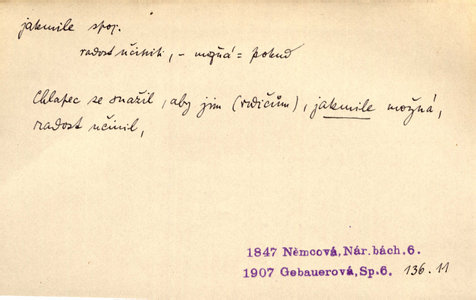 jakmile spoj.
radost učiniti, – možná = pokud
Chlapec se snažil, aby jim (rodičům), jakmile možná,
radost učinil,
1847 Němcová, Nár. bách. 6.
1907 Gebauerová, Sp. 6. 136. 11